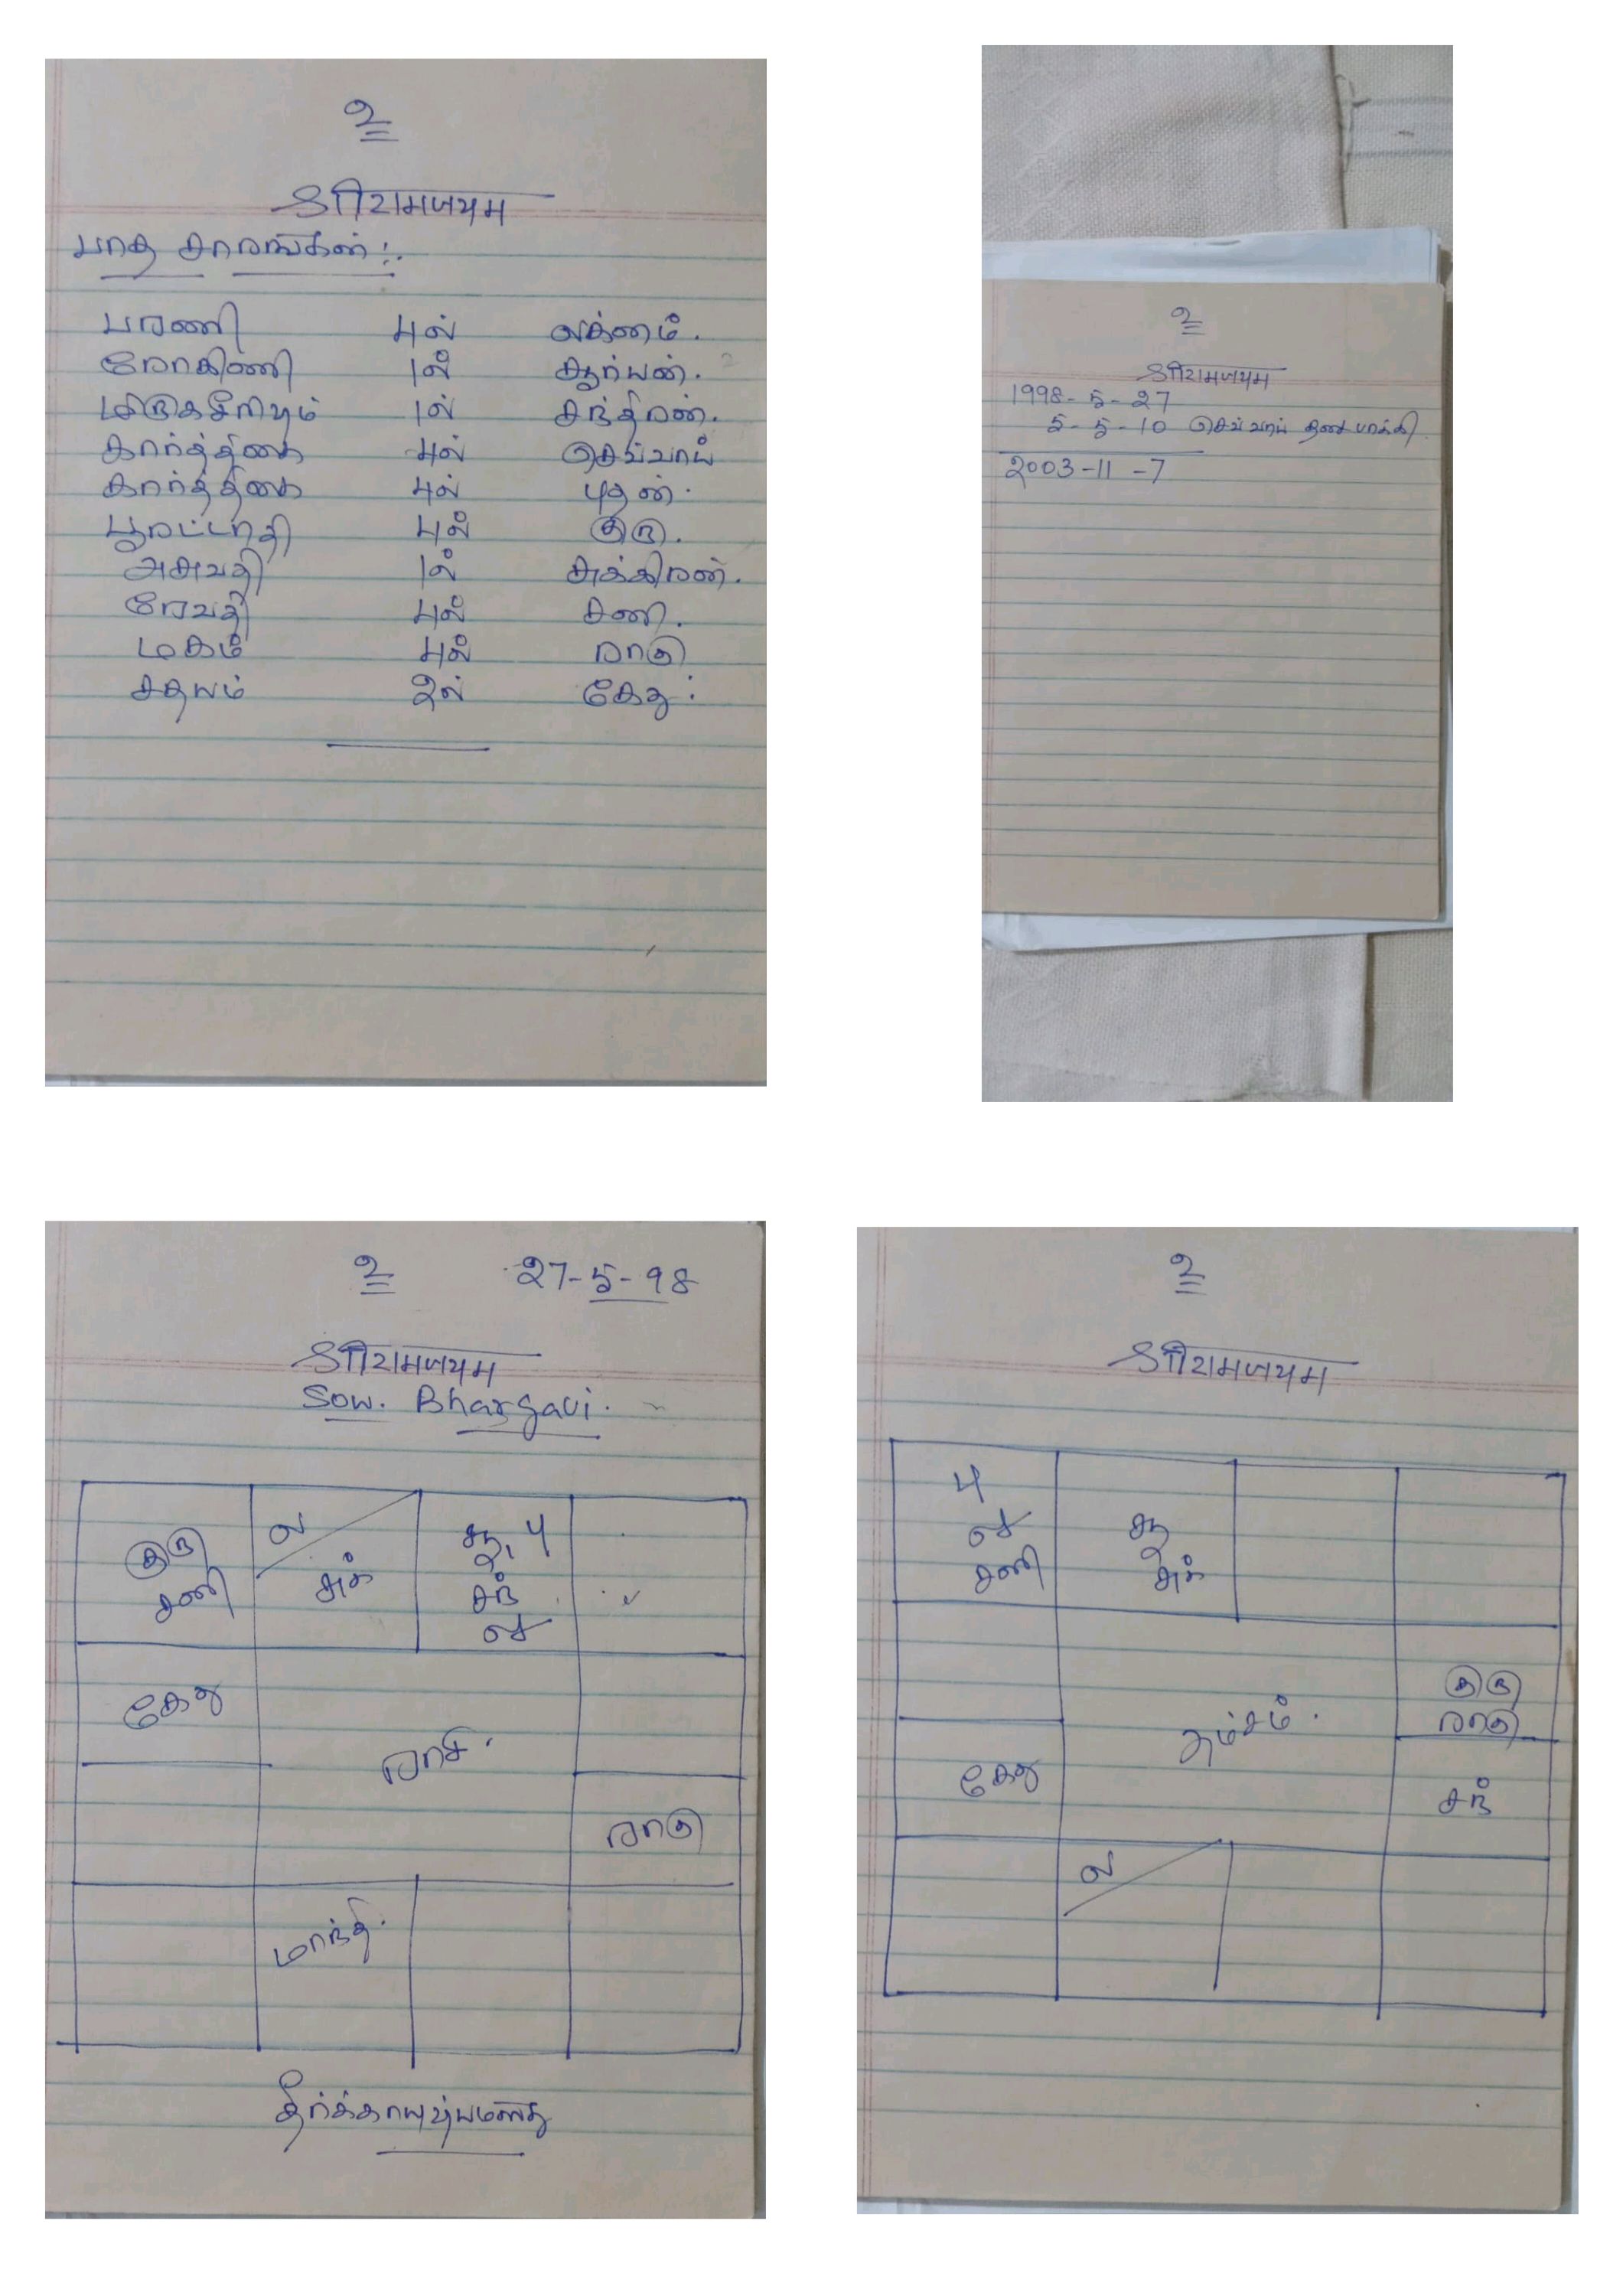 உ
ஸ்ரீராமஜயம்
பாத சாரங்கள் :.
பரணி 4ல் லக்னம்.
ரோகிணி 1ல் சூர்யன்.
மிருகசீரிஷம் 1ல் சந்திரன்.
கார்த்திகை 4ல் செவ்வாய்
கார்த்திகை 4ல் புதன்.
பூரட்டாதி 4ல் குரு.
அசுவதி 1ல் சுக்கிரன்.
ரேவதி 4ல் சனி.
மகம் 4ல் ராகு
சதயம் 2ல் கேது.
உ
ஸ்ரீராமஜயம்
1998-5-27
5-5-10 செவ்வாய் திசை பாக்கி
2003-11-7
உ 27-5-98
ஸ்ரீராமஜயம்
Sow. Bhargavi.
குரு சனி
ல சுக்
சூ, பு சந் செ
கேது
ராசி.
ராகு
மாந்தி.
உ
ஸ்ரீராமஜயம்
பு செ சனி
சூ சுக்
குரு ராகு
அம்சம்.
கேது
சந்
ல